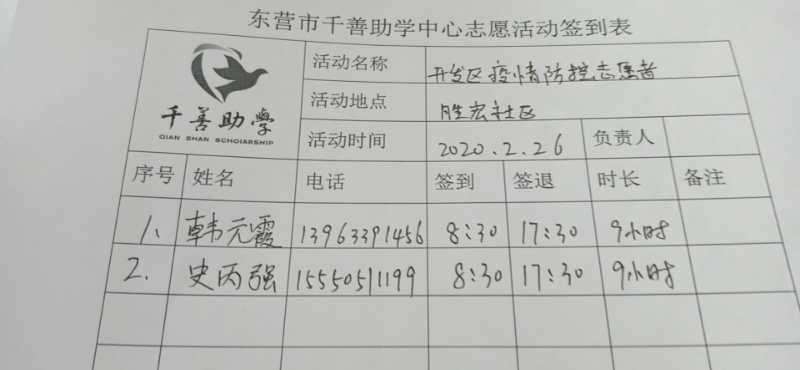 东营市千善助学中心志愿活动签到表
千善助学
QIAN SHAN SCHOLARSHIP
活动名称 开发区疫情防控志愿者
活动地点 胜宏社区
活动时间 2020.2.26 负责人
序号 姓名 电话 签到 签退 时长 备注
1、 韩元霞 13963391456 8:30 17:30 9小时
2. 史丙强 15550511199 8:30 17:30 9小时